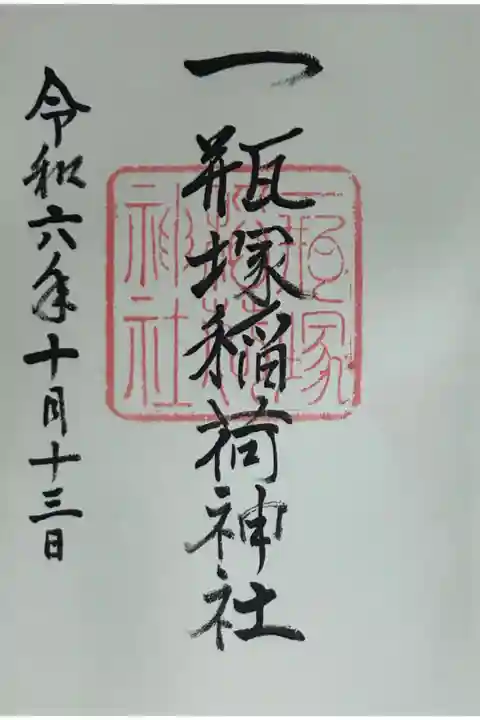 一瓶塚稲荷神社
令和六年十月十三日
一瓶塚
稲荷
神社